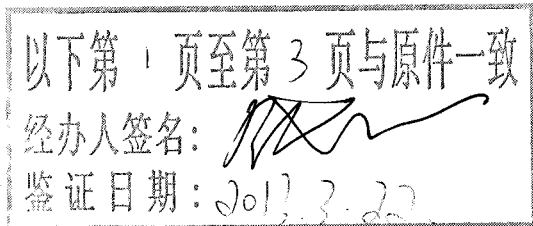 以下第 1 页至第 3 页与原件一致
经办人签名:
鉴证日期:2013.3.22